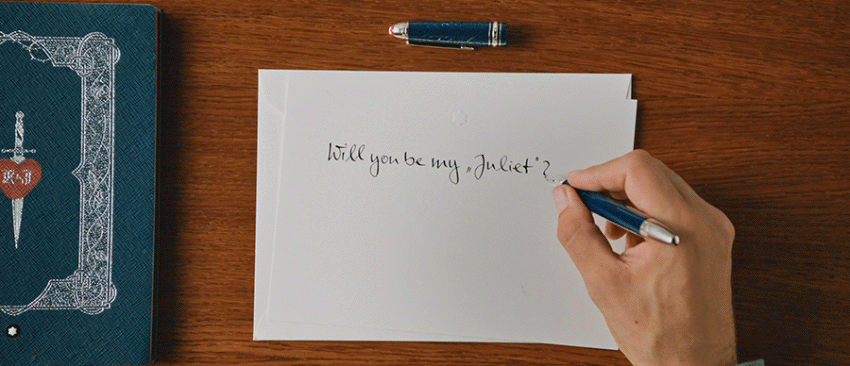 Will you be my „Juliet"?
R&J